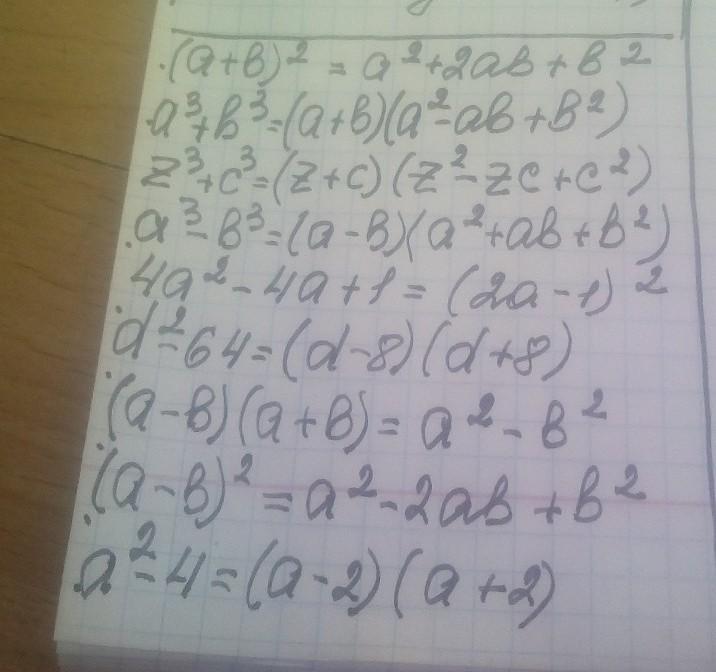 (a+b)² = a²+2ab+b²
a³+b³=(a+b)(a²-ab+b²)
z³+c³=(z+c)(z²-zc+c²)
a³-b³=(a-b)(a²+ab+b²)
4a²-4a+1=(2a-1)²
d²-64=(d-8)(d+8)
(a-b)(a+b)=a²-b²
(a-b)²=a²-2ab+b²
a²-4=(a-2)(a+2)